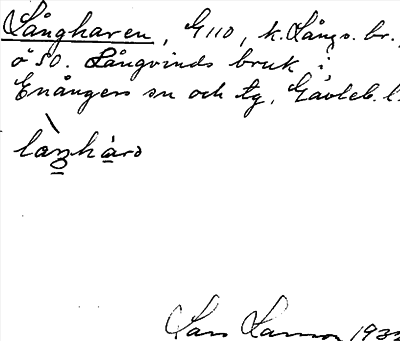 Långharen, G110, k. Långv. br.,
ö SO. Långvinds bruk i
Enångers sn och tg, Gävleb. l.
Lars Larsson 193